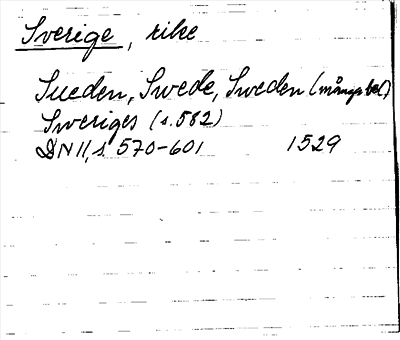 Sverige, rike
Sueden, Swede, Sweden (många bel.)
Sweriges (s. 582)
DN II, s. 570-601 1529